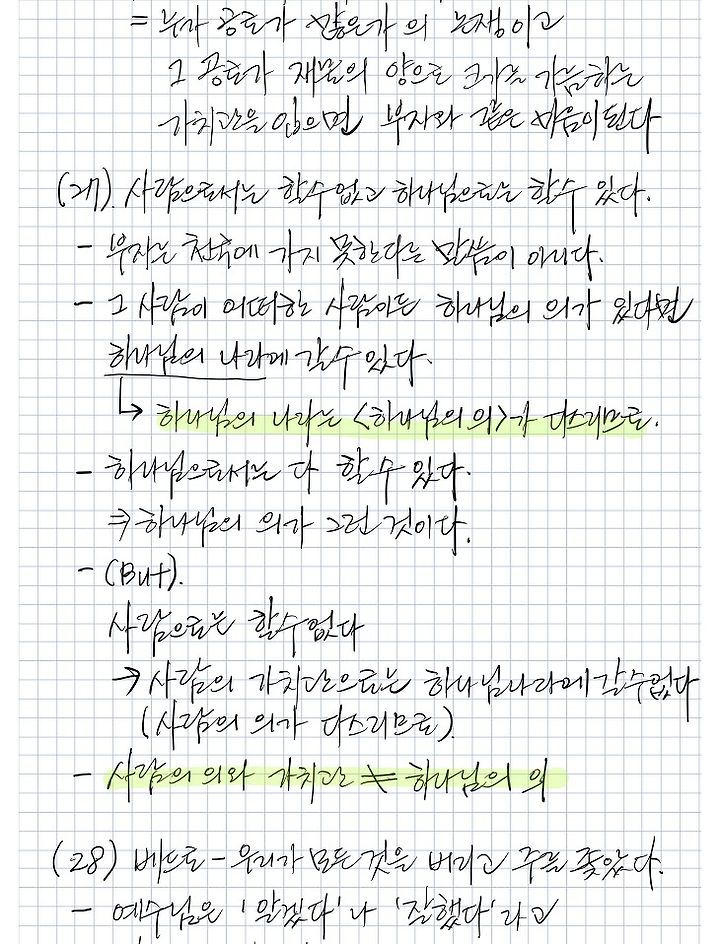 = 누가 공로가 많은가 의 논쟁이고
그 공로가 재물의 양으로 크기는 가늠하는
가치관을 입으면 부자와 같은 마음이 된다
(27). 사람으로서는 할수 없고 하나님으로는 할수 있다.
- 부자는 천국에 가지 못한다는 말씀이 아니다.
- 그 사람이 어떠한 사람이든 하나님의 의가 있다면
하나님의 나라에 갈수 있다.
↳ 하나님의 나라는 <하나님의 의>가 다스리므로.
- 하나님으로서는 다 할수 있다.
⇒ 하나님의 의가 그런 것이다.
- (But).
사람으로는 할수 없다
→ 사람의 가치관으로는 하나님나라에 갈수없다
(사람의 의가 다스리므로)
- 사람의 의와 가치관 ≠ 하나님의 의
(28) 베드로 - 우리가 모든 것을 버리고 주를 좇았다.
- 예수님은 '알겠다'나 '잘했다'라고